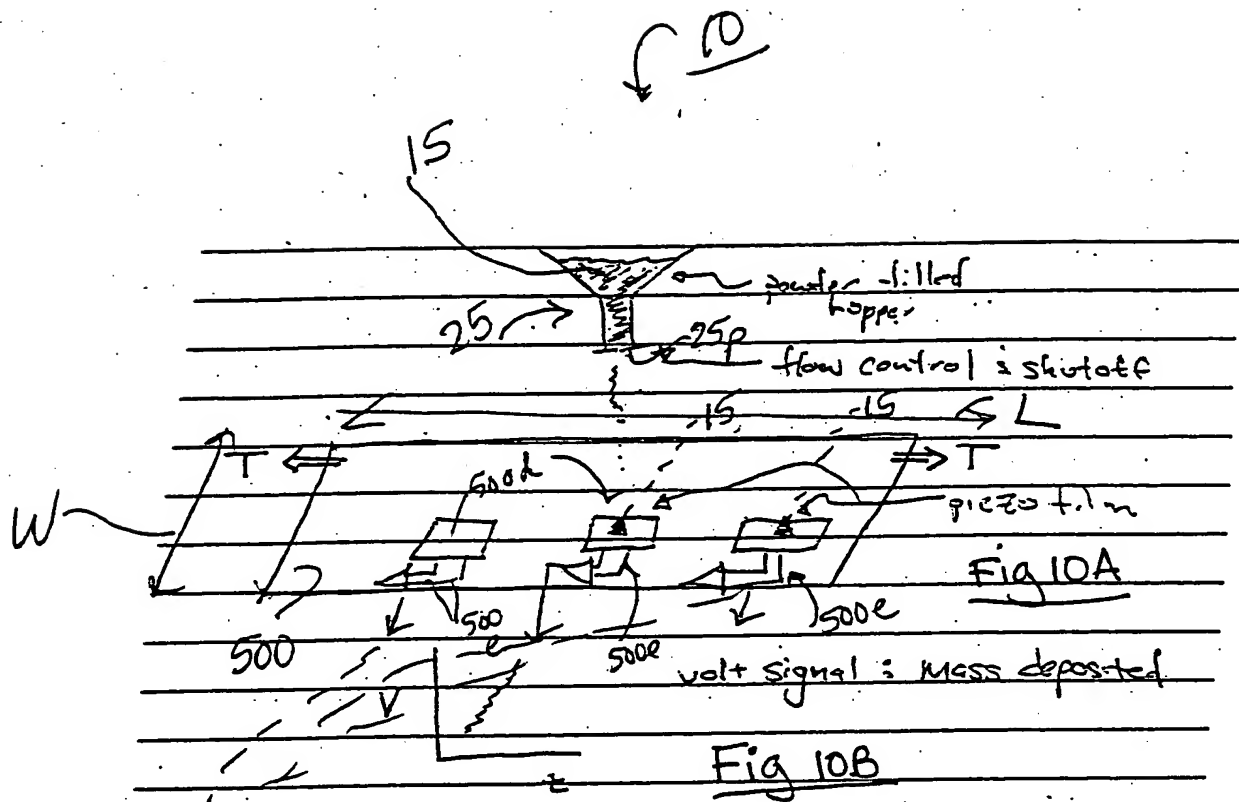 10
15
powder-filled
hopper
25
25p
flow control & shutoff
15 15 L
T T
500d
piezo film
W
Fig 10A
500 500e 500e
500
volt signal : mass deposited
V
Fig 10B
t